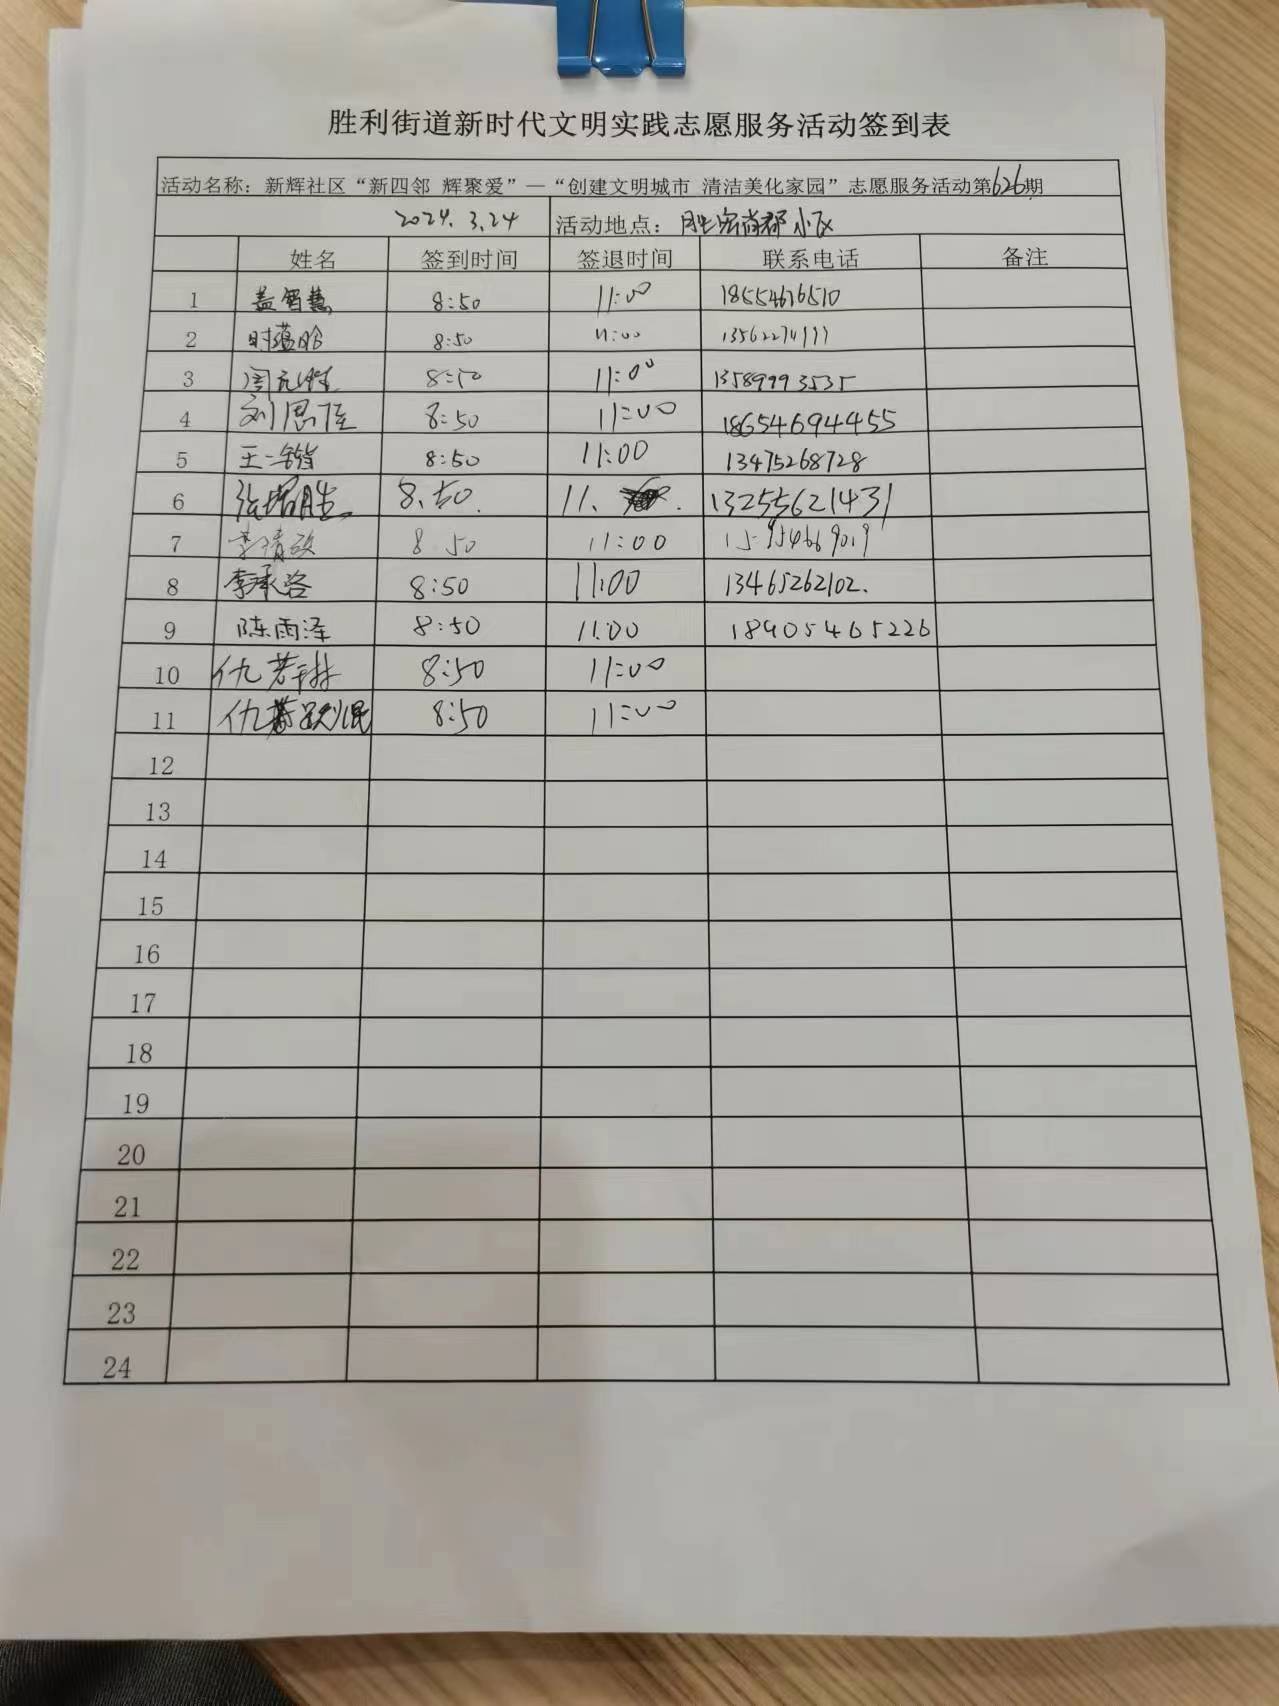 胜利街道新时代文明实践志愿服务活动签到表
活动名称：新辉社区“新四邻 辉聚爱”—“创建文明城市 清洁美化家园”志愿服务活动第626期
2024.3.24 活动地点：胜宏尚都小区
姓名 签到时间 签退时间 联系电话 备注
1 盖智慧 8:50 11:00 18554616510
2 8:50 11:00
3 8:50 11:00 13589993535
4 刘思佳 8:50 11:00 18654694455
5 王一锴 8:50 11:00 13475268728
6 张增胜 8.50. 11. 13255621431
7 8.50 11:00 15954669019
8 李承洛 8:50 11:00 13465262102.
9 陈雨泽 8:50 11:00 18905465226
10 仇若琳 8:50 11:00
11 仇 8:50 11:00
12
13
14
15
16
17
18
19
20
21
22
23
24